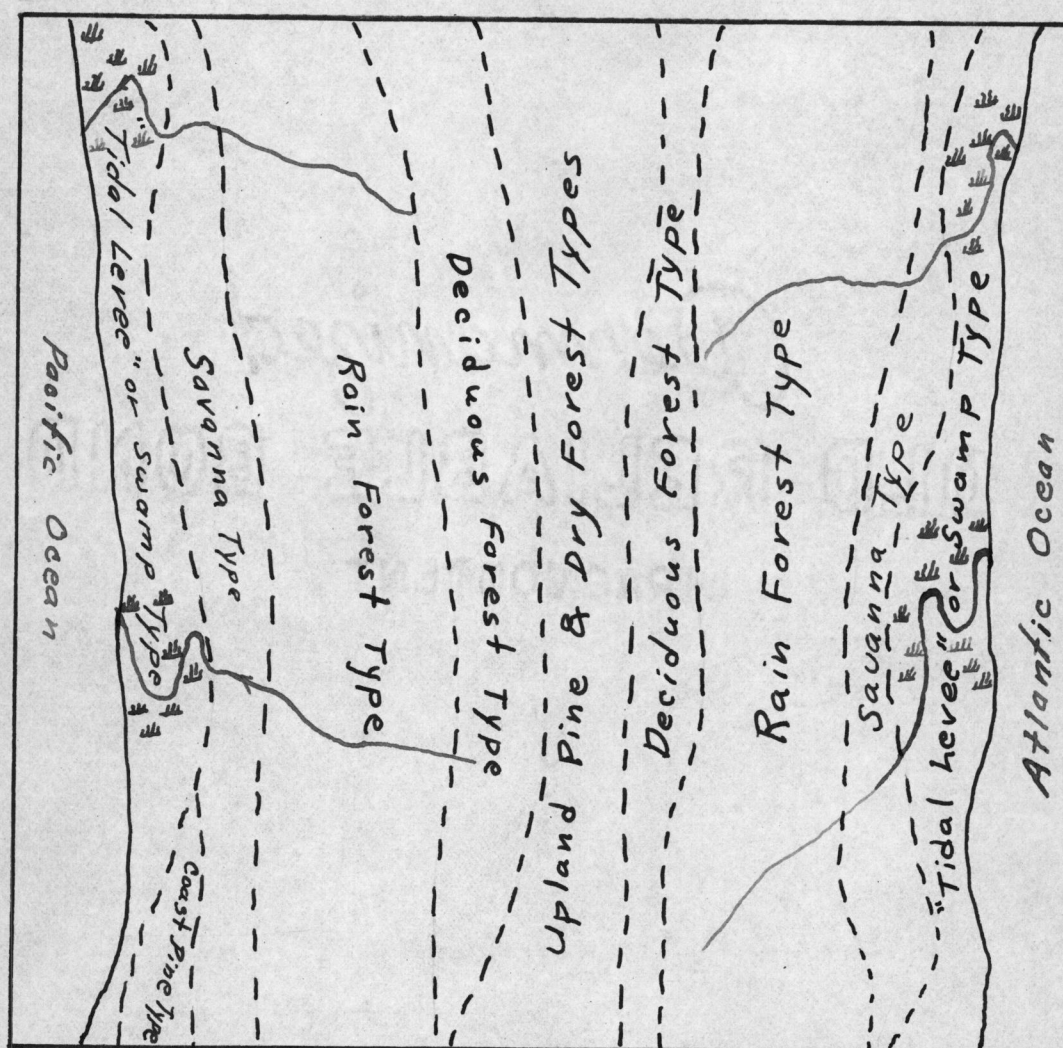 Pacific Ocean
"Tidal Levee" or Swamp Type
Coast Pine Type
Savanna Type
Rain Forest Type
Deciduous Forest Type
Upland Pine & Dry Forest Types
Deciduous Forest Type
Rain Forest Type
Savanna Type
"Tidal Levee" or Swamp Type
Atlantic Ocean